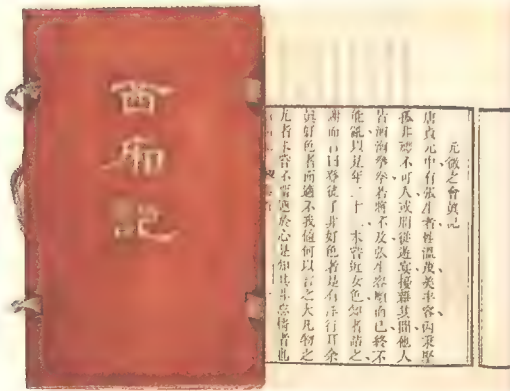 西廂記
元微之會真記
唐貞元中有張生者性溫茂美丰容內秉堅
孤非禮不可入或朋從遊宴擾雜其間他人
皆洶洶拳拳若將不及張生容順而已終不
能亂以是年二十三未嘗近女色知者詰之
謝而言曰登徒子非好色者是有凶行耳余
真好色者而適不我值何以言之大凡物之
尤者未嘗不留連於心是知其非忘情者也